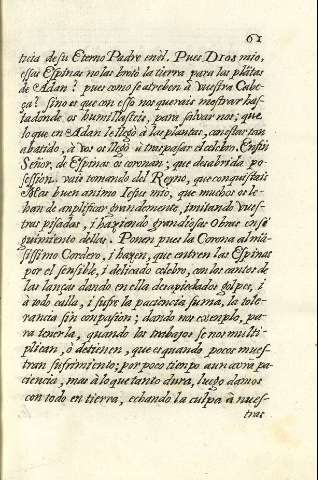 61
tuia de su Eterno Padre en èl. Pues DIOS mio,
essas Espinas no las brotò la tierra para las plãtas
de Adan? pues como se atreben à vuestra Cabe-
ça? sino es que con esso nos querais mostrar has-
tadonde os humillasteis, para salvar nos; que
lo que en Adan le llegò à las plantas, con estar tan
abatido, à vos os llegò à traspasar el celebro. En fin
Señor, de Espinas os coronan; que desabrida po-
session vais tomando del Reyno, que conquistais
Mas buen animo Iesus mio, que muchos os le
han de anplificar grandemente, imitando vues-
tras pisadas, i haziendo grandiosas Obras en se-
guimiento dellas. Ponen pues la Corona al mã-
sissimo Cordero, i hazen, que entren las Espinas
por el sensible, i delicado celebro, con los cantos de
las lanças dando en ella desapiadados golpes, i
à todo calla, i sufre la paciencia suma, la tole-
rancia sin conpasiòn; dando nos exemplo, pa-
ra tenerla, quando los trabajos se nos multi-
plican, ò detienen, que es quando pocos mues-
tran sufrimiento; por poco tienpo aun avrà pa-
ciencia, mas à lo que tanto dura, luego damos
con todo en tierra, echando la culpa à nues-
tras